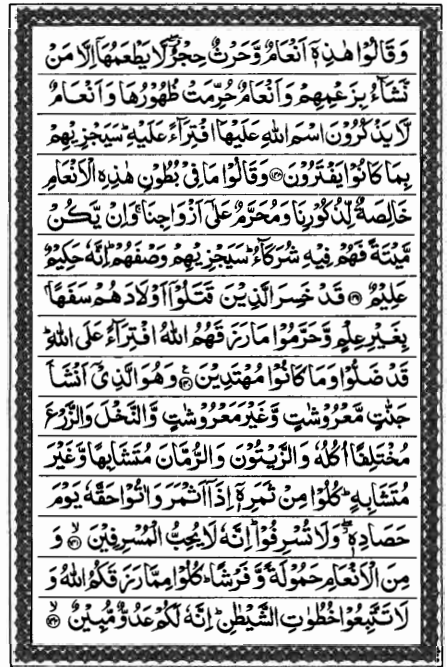 وَقَالُوْا هٰذِهٖۤ اَنْعَامٌ وَّحَرْثٌ حِجْرٌ ۖ لَّا يَطْعَمُهَاۤ اِلَّا مَنْ
نَّشَآءُ بِزَعْمِهِمْ وَاَنْعَامٌ حُرِّمَتْ ظُهُوْرُهَا وَاَنْعَامٌ
لَّا يَذْكُرُوْنَ اسْمَ اللّٰهِ عَلَيْهَا افْتِرَآءً عَلَيْهِ ؕ سَيَجْزِيْهِمْ
بِمَا كَانُوْا يَفْتَرُوْنَ ﴿۱۳۸﴾ وَقَالُوْا مَا فِيْ بُطُوْنِ هٰذِهِ الْاَنْعَامِ
خَالِصَةٌ لِّذُكُوْرِنَا وَمُحَرَّمٌ عَلٰۤى اَزْوَاجِنَا ۚ وَاِنْ يَّكُنْ
مَّيْتَةً فَهُمْ فِيْهِ شُرَكَآءُ ؕ سَيَجْزِيْهِمْ وَصْفَهُمْ ؕ اِنَّهٗ حَكِيْمٌ
عَلِيْمٌ ﴿۱۳۹﴾ قَدْ خَسِرَ الَّذِيْنَ قَتَلُوْۤا اَوْلَادَهُمْ سَفَهًۢا
بِغَيْرِ عِلْمٍ وَّحَرَّمُوْا مَا رَزَقَهُمُ اللّٰهُ افْتِرَآءً عَلَى اللّٰهِ ؕ
قَدْ ضَلُّوْا وَمَا كَانُوْا مُهْتَدِيْنَ ﴿۱۴۰﴾ وَهُوَ الَّذِيْۤ اَنْشَاَ
جَنّٰتٍ مَّعْرُوْشٰتٍ وَّغَيْرَ مَعْرُوْشٰتٍ وَّالنَّخْلَ وَالزَّرْعَ
مُخْتَلِفًا اُكُلُهٗ وَالزَّيْتُوْنَ وَالرُّمَّانَ مُتَشَابِهًا وَّغَيْرَ
مُتَشَابِهٍ ؕ كُلُوْا مِنْ ثَمَرِهٖۤ اِذَاۤ اَثْمَرَ وَاٰتُوْا حَقَّهٗ يَوْمَ
حَصَادِهٖ ۖ وَلَا تُسْرِفُوْا ؕ اِنَّهٗ لَا يُحِبُّ الْمُسْرِفِيْنَ ﴿۱۴۱﴾ وَ
مِنَ الْاَنْعَامِ حَمُوْلَةً وَّفَرْشًا ؕ كُلُوْا مِمَّا رَزَقَكُمُ اللّٰهُ وَ
لَا تَتَّبِعُوْا خُطُوٰتِ الشَّيْطٰنِ ؕ اِنَّهٗ لَكُمْ عَدُوٌّ مُّبِيْنٌ ﴿۱۴۲﴾